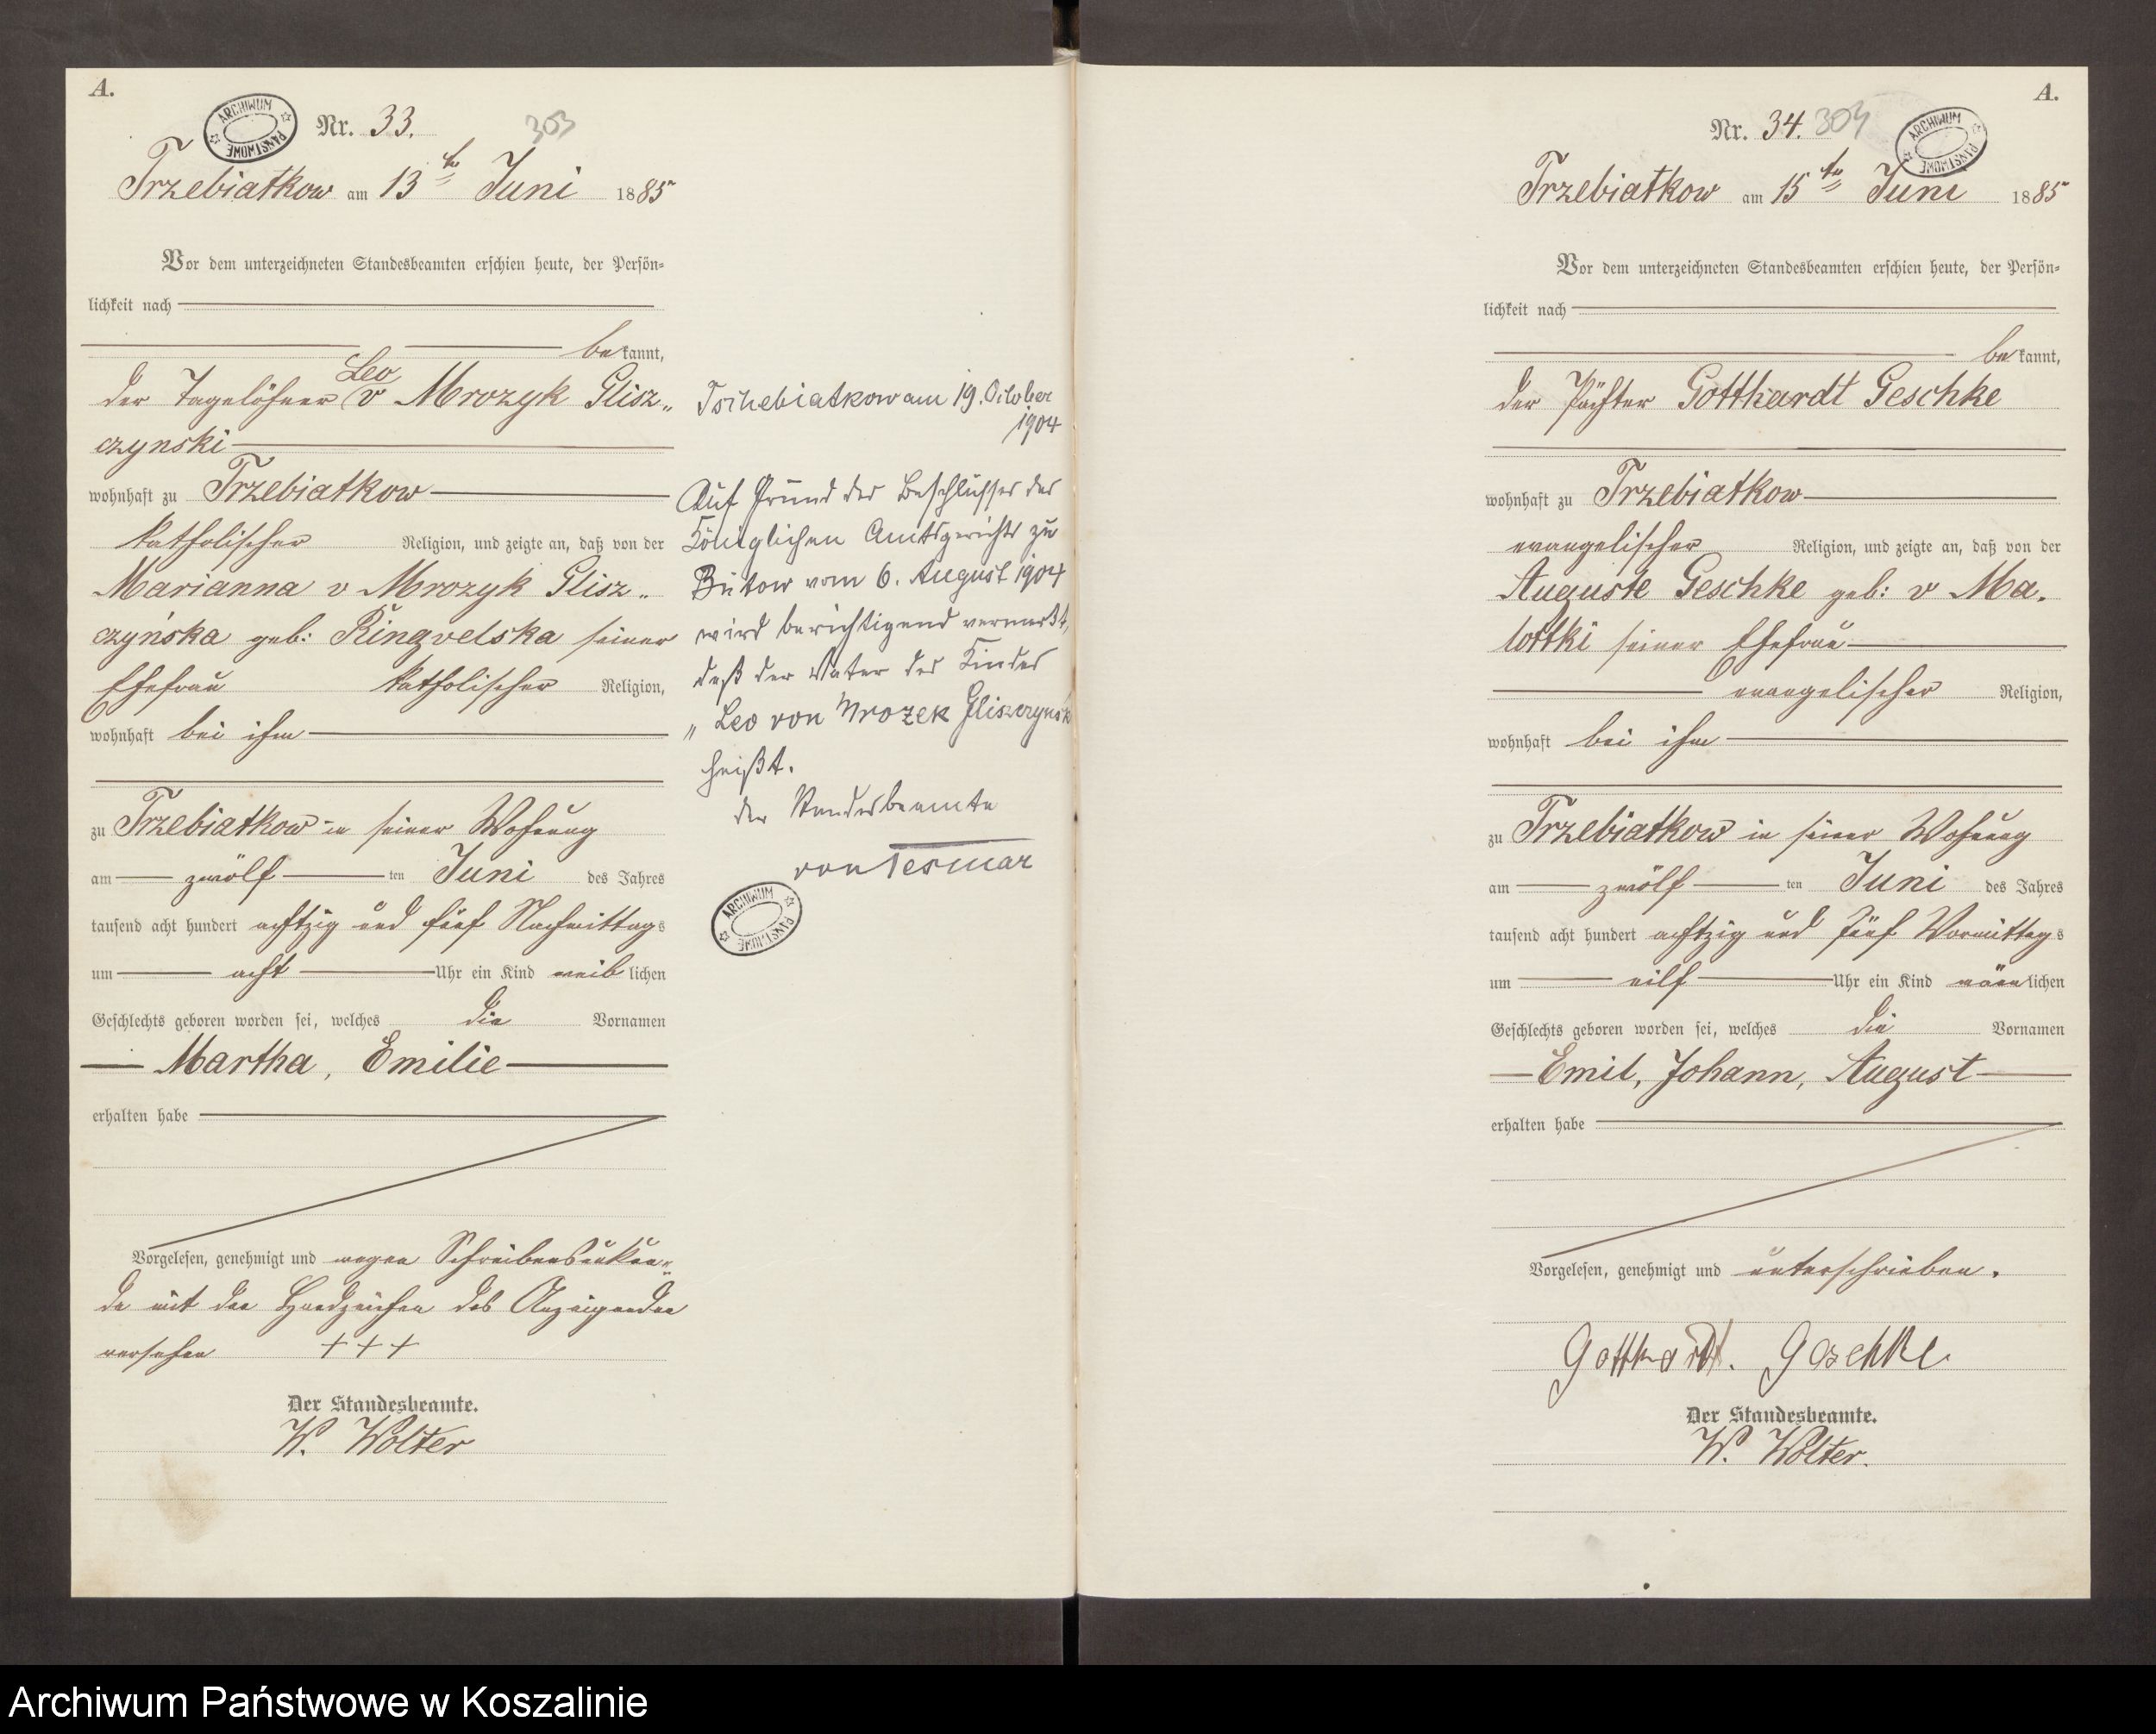 A.
ARCHIWUM PAŃSTWOWE
Nr. 33.
303
Trzebiatkow am 13ten Juni 1885
Vor dem unterzeichneten Standesbeamten erschien heute, der Persön-
lichkeit nach
bekannt,
Leo
der Tagelöhner v Mrozyk Glisz„
czynski
wohnhaft zu Trzebiatkow
katholischer Religion, und zeigte an, daß von der
Marianna v Mrozyk Glisz„
czyńska geb: Ringvelska seiner
Ehefrau katholischer Religion,
wohnhaft bei ihm
zu Trzebiatkow in seiner Wohnung
am zwölf ten Juni des Jahres
tausend acht hundert achtzig und fünf Nachmittags
um acht Uhr ein Kind weiblichen
Geschlechts geboren worden sei, welches die Vornamen
Martha, Emilie
erhalten habe
Vorgelesen, genehmigt und wegen Schreibensunkun„
de mit den Handzeichen des Anzeigenden
versehen +++
Der Standesbeamte.
W. Wolter
Tschebiatkow am 19. October
1904
Auf Grund des Beschlusses des
Königlichen Amtsgerichts zu
Bütow vom 6. August 1904
wird berichtigend vermerkt,
daß der Vater des Kindes
„Leo von Mrozek Gliszczynski
heißt.
der Standesbeamte
von Tesmar
ARCHIWUM PAŃSTWOWE
A.
Nr. 34. 304
ARCHIWUM PAŃSTWOWE
Trzebiatkow am 15ten Juni 1885
Vor dem unterzeichneten Standesbeamten erschien heute, der Persön-
lichkeit nach
bekannt,
der Pächter Gotthardt Geschke
wohnhaft zu Trzebiatkow
evangelischer Religion, und zeigte an, daß von der
Auguste Geschke geb: v Ma.
lottki seiner Ehefrau
evangelischer Religion,
wohnhaft bei ihm
zu Trzebiatkow in seiner Wohnung
am zwölf ten Juni des Jahres
tausend acht hundert achtzig und fünf Vormittags
um eilf Uhr ein Kind männlichen
Geschlechts geboren worden sei, welches die Vornamen
Emil, Johann, August
erhalten habe
Vorgelesen, genehmigt und unterschrieben.
Gotthardt. Geschke
Der Standesbeamte.
W. Wolter.
Archiwum Państwowe w Koszalinie